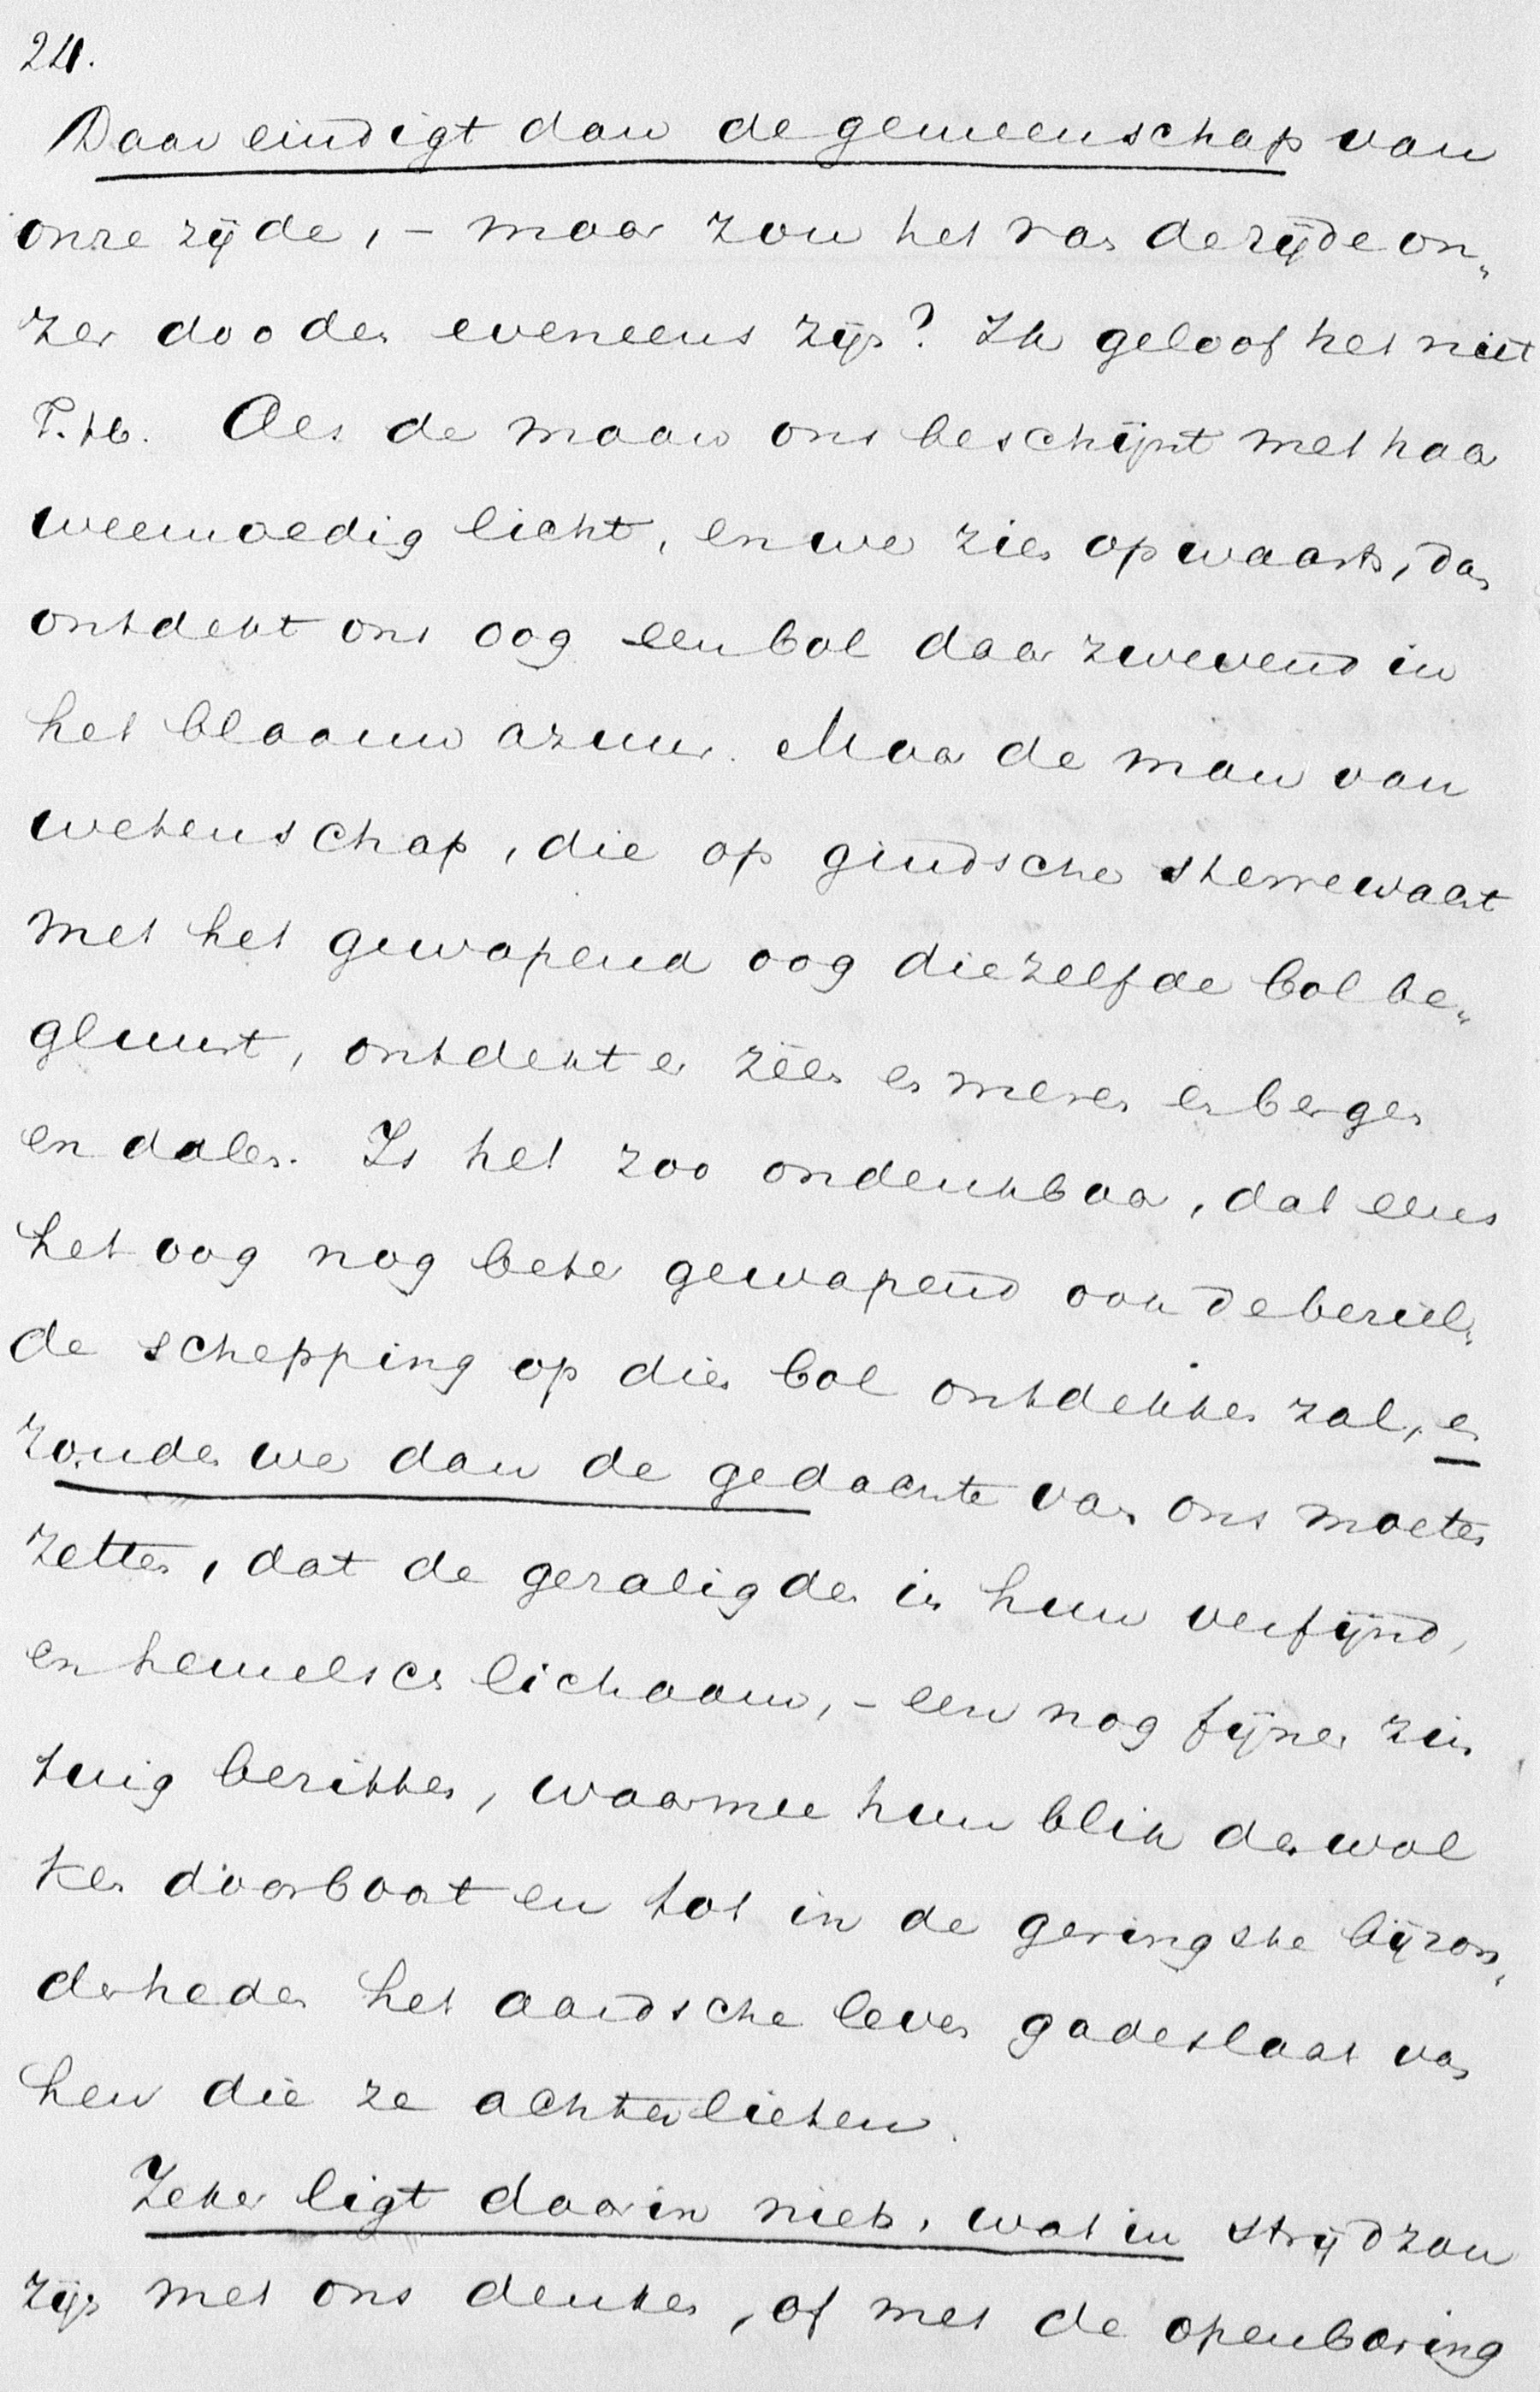 24.
Daar eindigt dan de gemeenschap van
onze zijde, – maar zou het van de zijde on„
zer dooden eveneens zijn? Ik geloof het niet
T. H. Als de maan ons beschijnt met haar
weemoedig licht, en we zien opwaarts, dan
ontdekt ons oog een bol daar zwevend in
het blaauw azuur. Maar de man van
wetenschap, die op gindsche sterrewacht
met het gewapend oog diezelfde bol be„
gluurt, ontdekt er zeën en meren en bergen
en dalen. Is het zoo ondenkbaar, dat eens
het oog nog beter gewapend ook de beziel„
de schepping op dien bol ontdekken zal, en
zouden we dan de gedachte van ons moeten
zetten, dat de gezaligden in hun verfijnd,
en hemelsch lichaam, – een nog fijner zin
tuig bezitten, waarmee hun blik de wol
ken doorboort en tot in de geringste bijzon„
derheden het aardsche leven gadeslaat van
hen die ze achterlieten.
Zeker ligt daarin niets, wat in strijd zou
zijn met ons denken, of met de openbaring